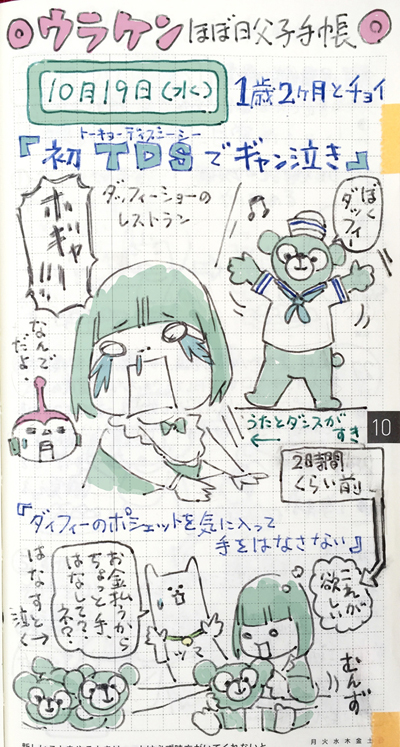 ウラケン ほぼ日父子手帳
10月19日(水) 1歳2ヶ月とチョイ
トーキョーディズニーシー
『初TDSでギャン泣き』
ダッフィーショーの
レストラン
ボギャー!!!
ぼく
ダッフィー
なんで
だよ
うたとダンスが
すき
←
10
2時間
くらい前
『ダッフィーのポシェットを気に入って
手をはなさない』
お金払うから
ちょっと手、
はなして?
ネ?
はなすと
泣く
これが
欲しい
むんず
月 火 水 木 金 土